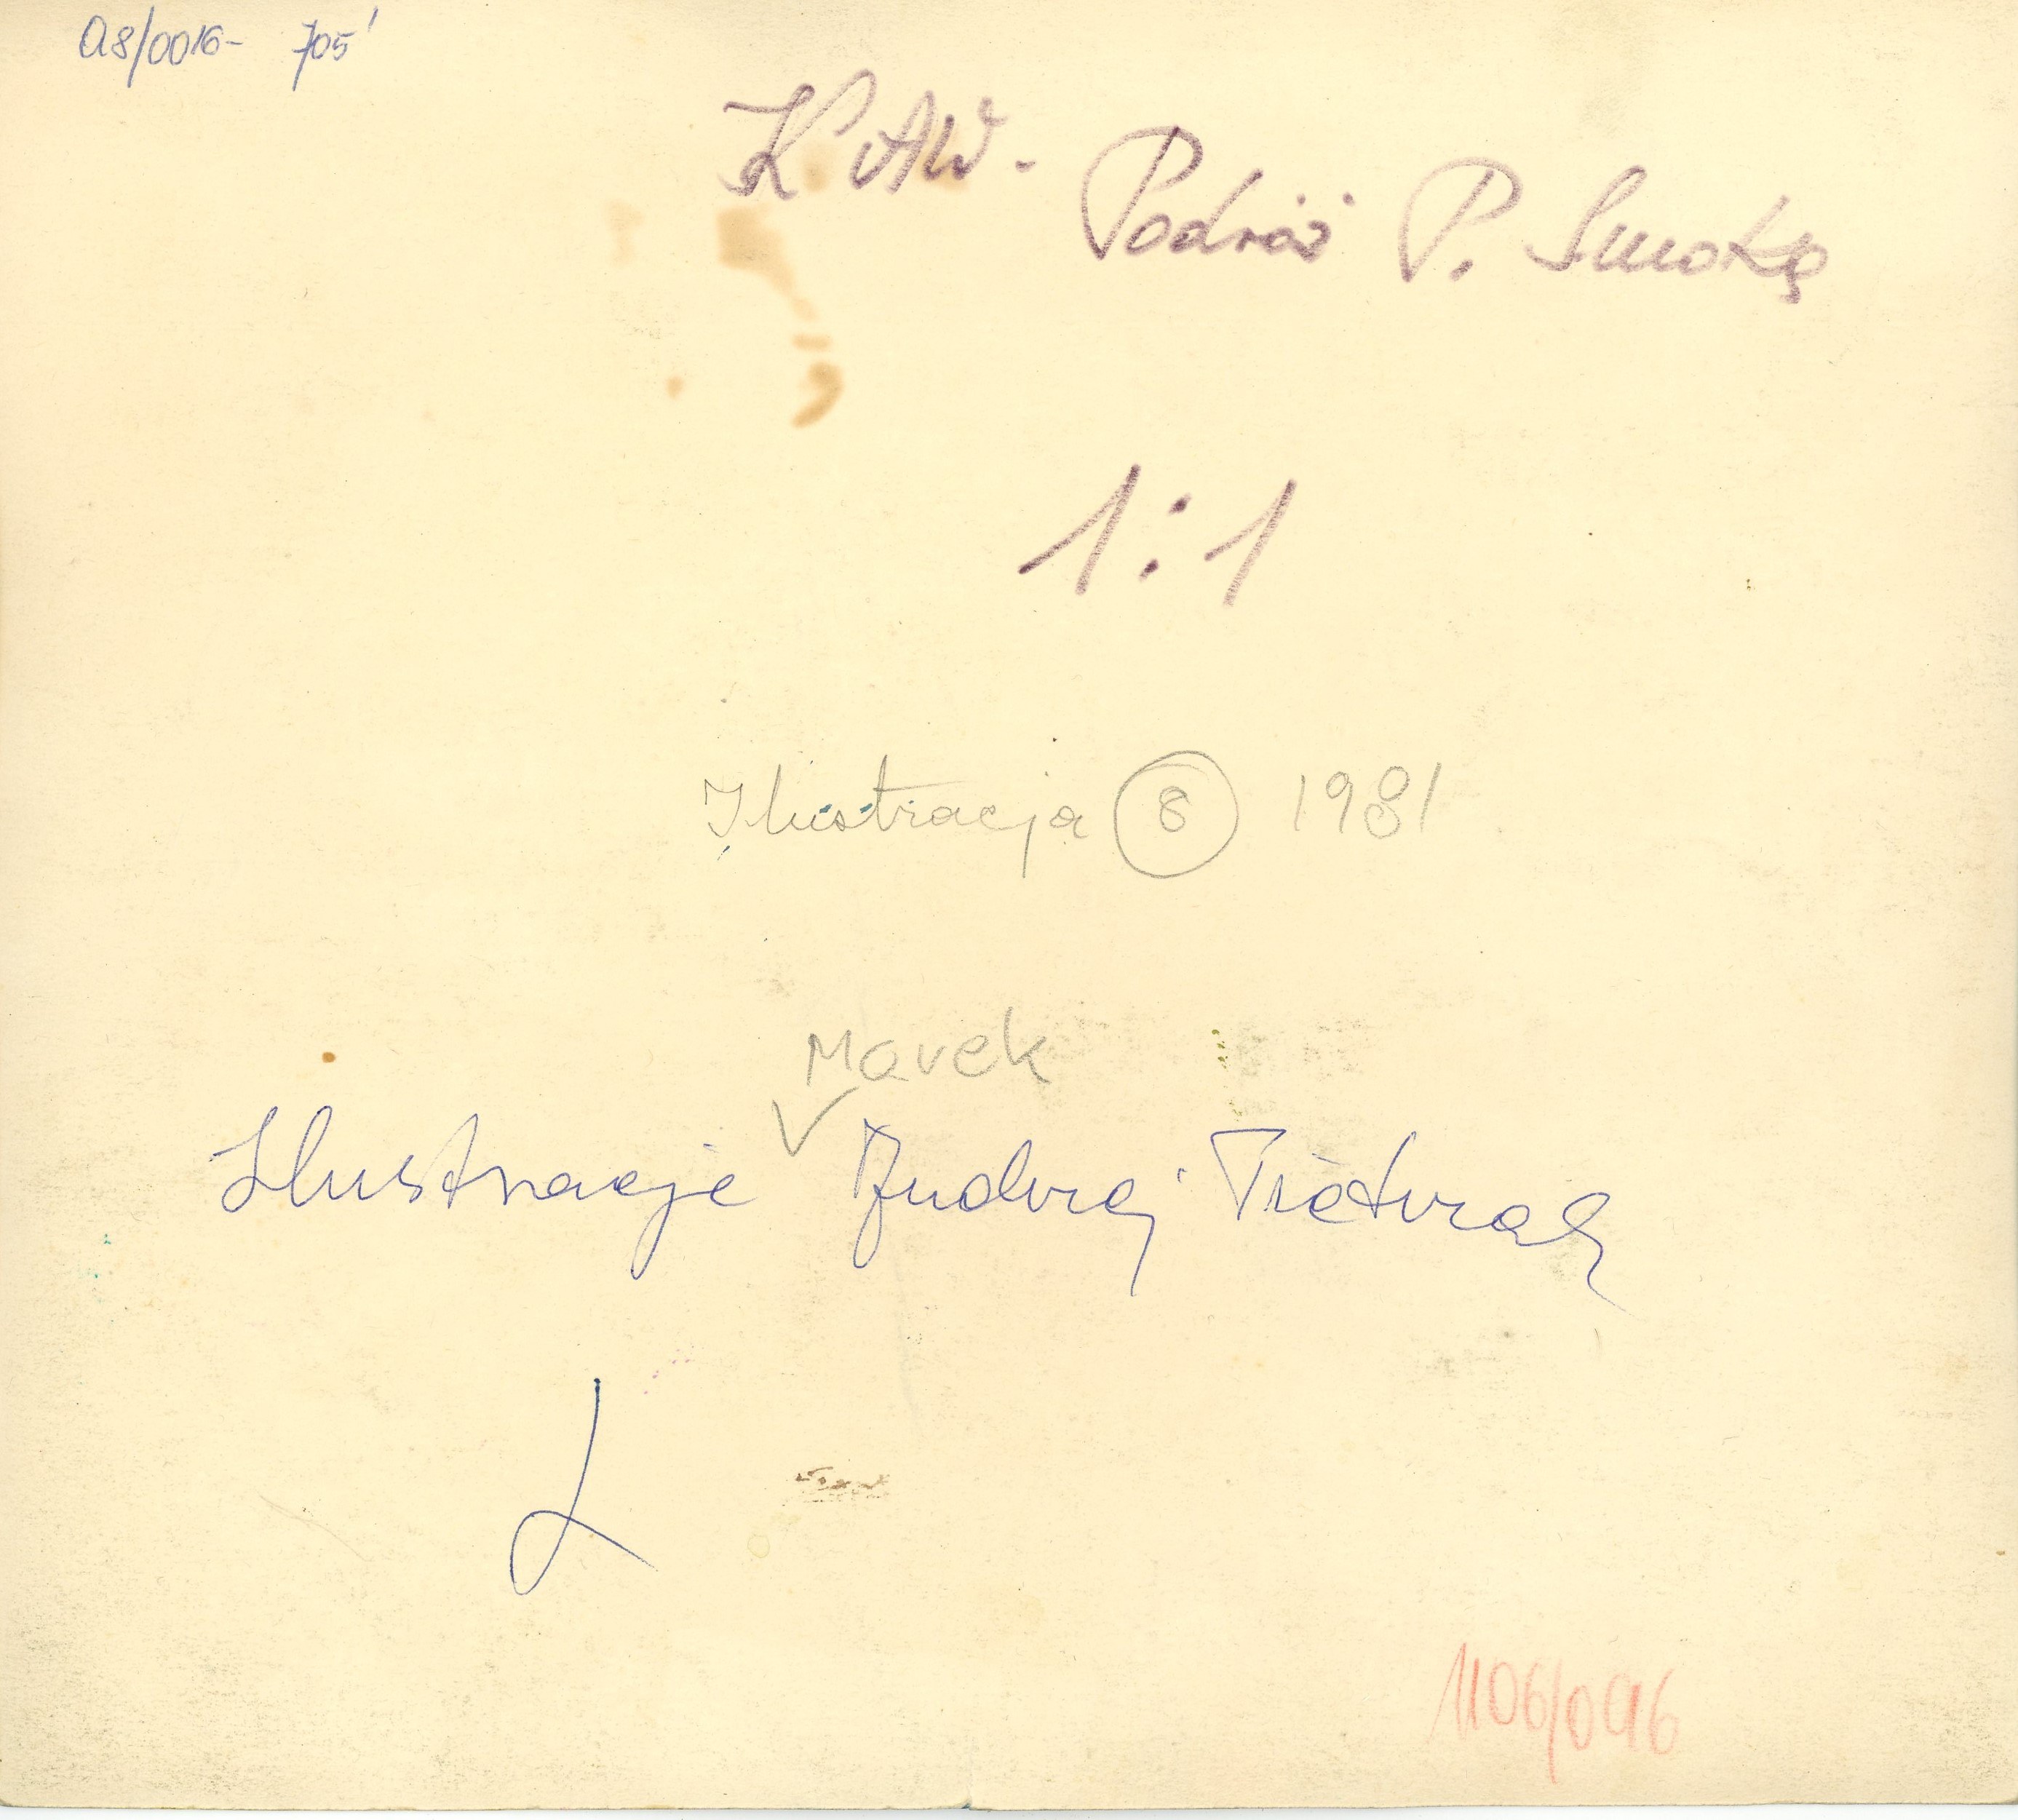 A8/0016- 705'
KAW - Podróż P. Smoka
1:1
Ilustracja 8 1981
Marek
Ilustracje Andrzej Pietrzak
1106/096